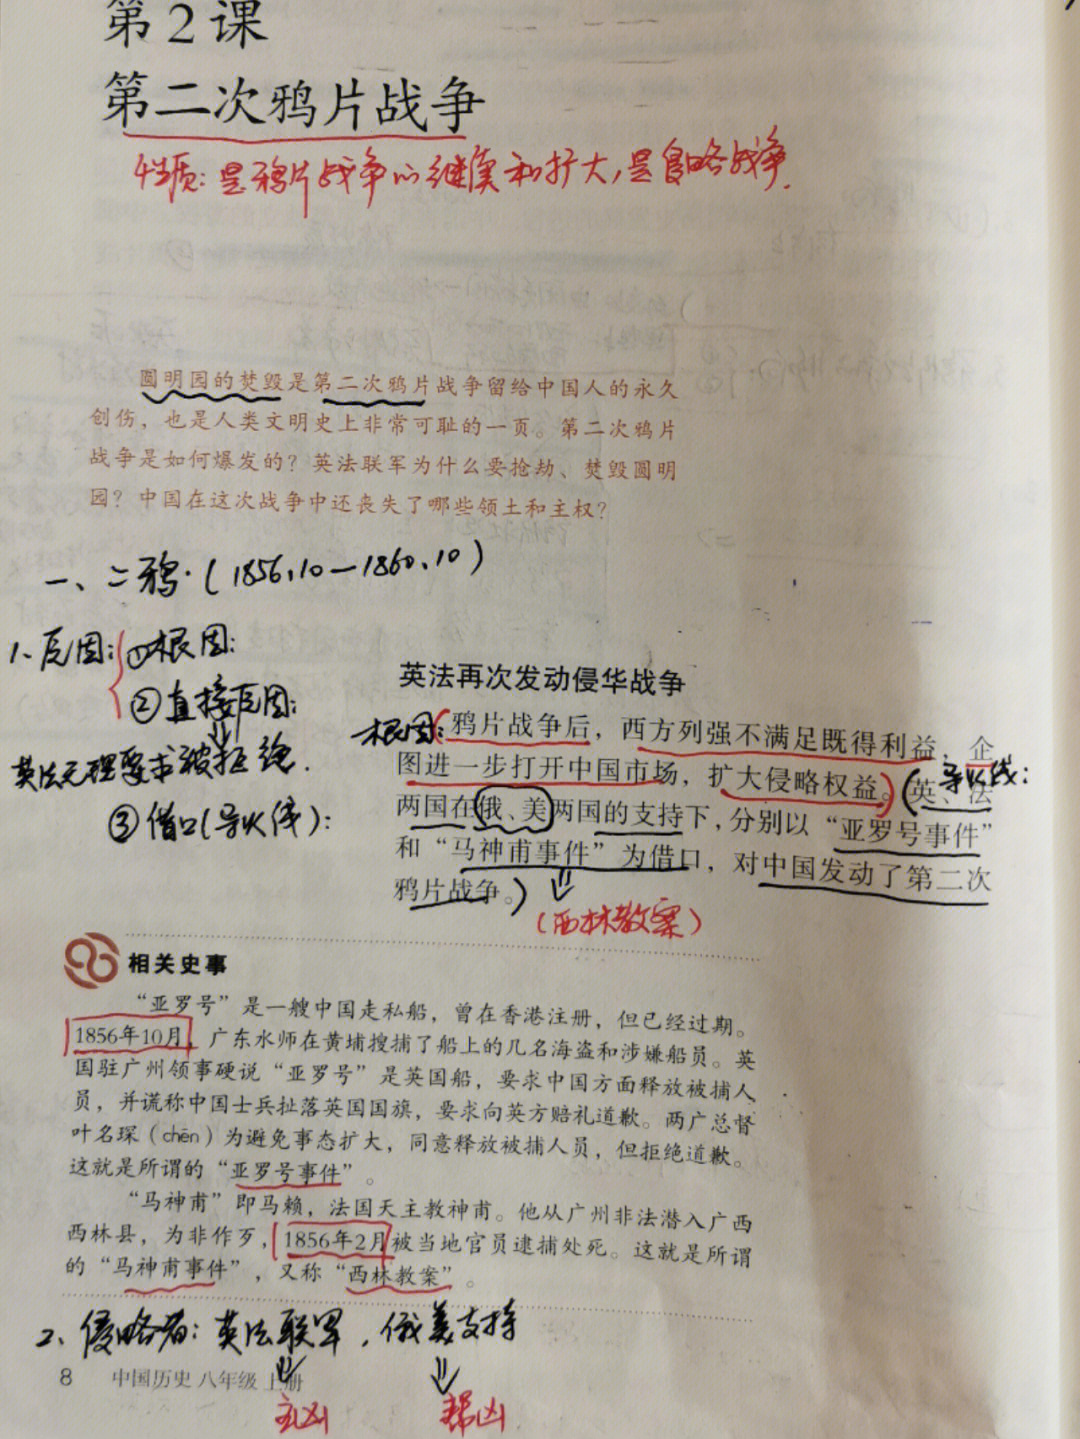 第2课
第二次鸦片战争
性质：是鸦片战争的继续和扩大，是侵略战争.
圆明园的焚毁是第二次鸦片战争留给中国人的永久
创伤，也是人类文明史上非常可耻的一页。第二次鸦片
战争是如何爆发的？英法联军为什么要抢劫、焚毁圆明
园？中国在这次战争中还丧失了哪些领土和主权？
一、二鸦.（1856.10—1860.10）
1、原因：①根因：
②直接原因：
英法无理要求被拒绝.
③借口（导火线）：
英法再次发动侵华战争
根因：（鸦片战争后，西方列强不满足既得利益，企
图进一步打开中国市场，扩大侵略权益。）（英、法
导火线：
两国在俄、美两国的支持下，分别以“亚罗号事件”
和“马神甫事件”为借口，对中国发动了第二次
鸦片战争。）
（西林教案）
相关史事
“亚罗号”是一艘中国走私船，曾在香港注册，但已经过期。
1856年10月，广东水师在黄埔搜捕了船上的几名海盗和涉嫌船员。英
国驻广州领事硬说“亚罗号”是英国船，要求中国方面释放被捕人
员，并谎称中国士兵扯落英国国旗，要求向英方赔礼道歉。两广总督
叶名琛（chēn）为避免事态扩大，同意释放被捕人员，但拒绝道歉。
这就是所谓的“亚罗号事件”。
“马神甫”即马赖，法国天主教神甫。他从广州非法潜入广西
西林县，为非作歹，1856年2月被当地官员逮捕处死。这就是所谓
的“马神甫事件”，又称“西林教案”。
2、侵略者：英法联军，俄美支持
8 中国历史 八年级 上册
主凶 帮凶